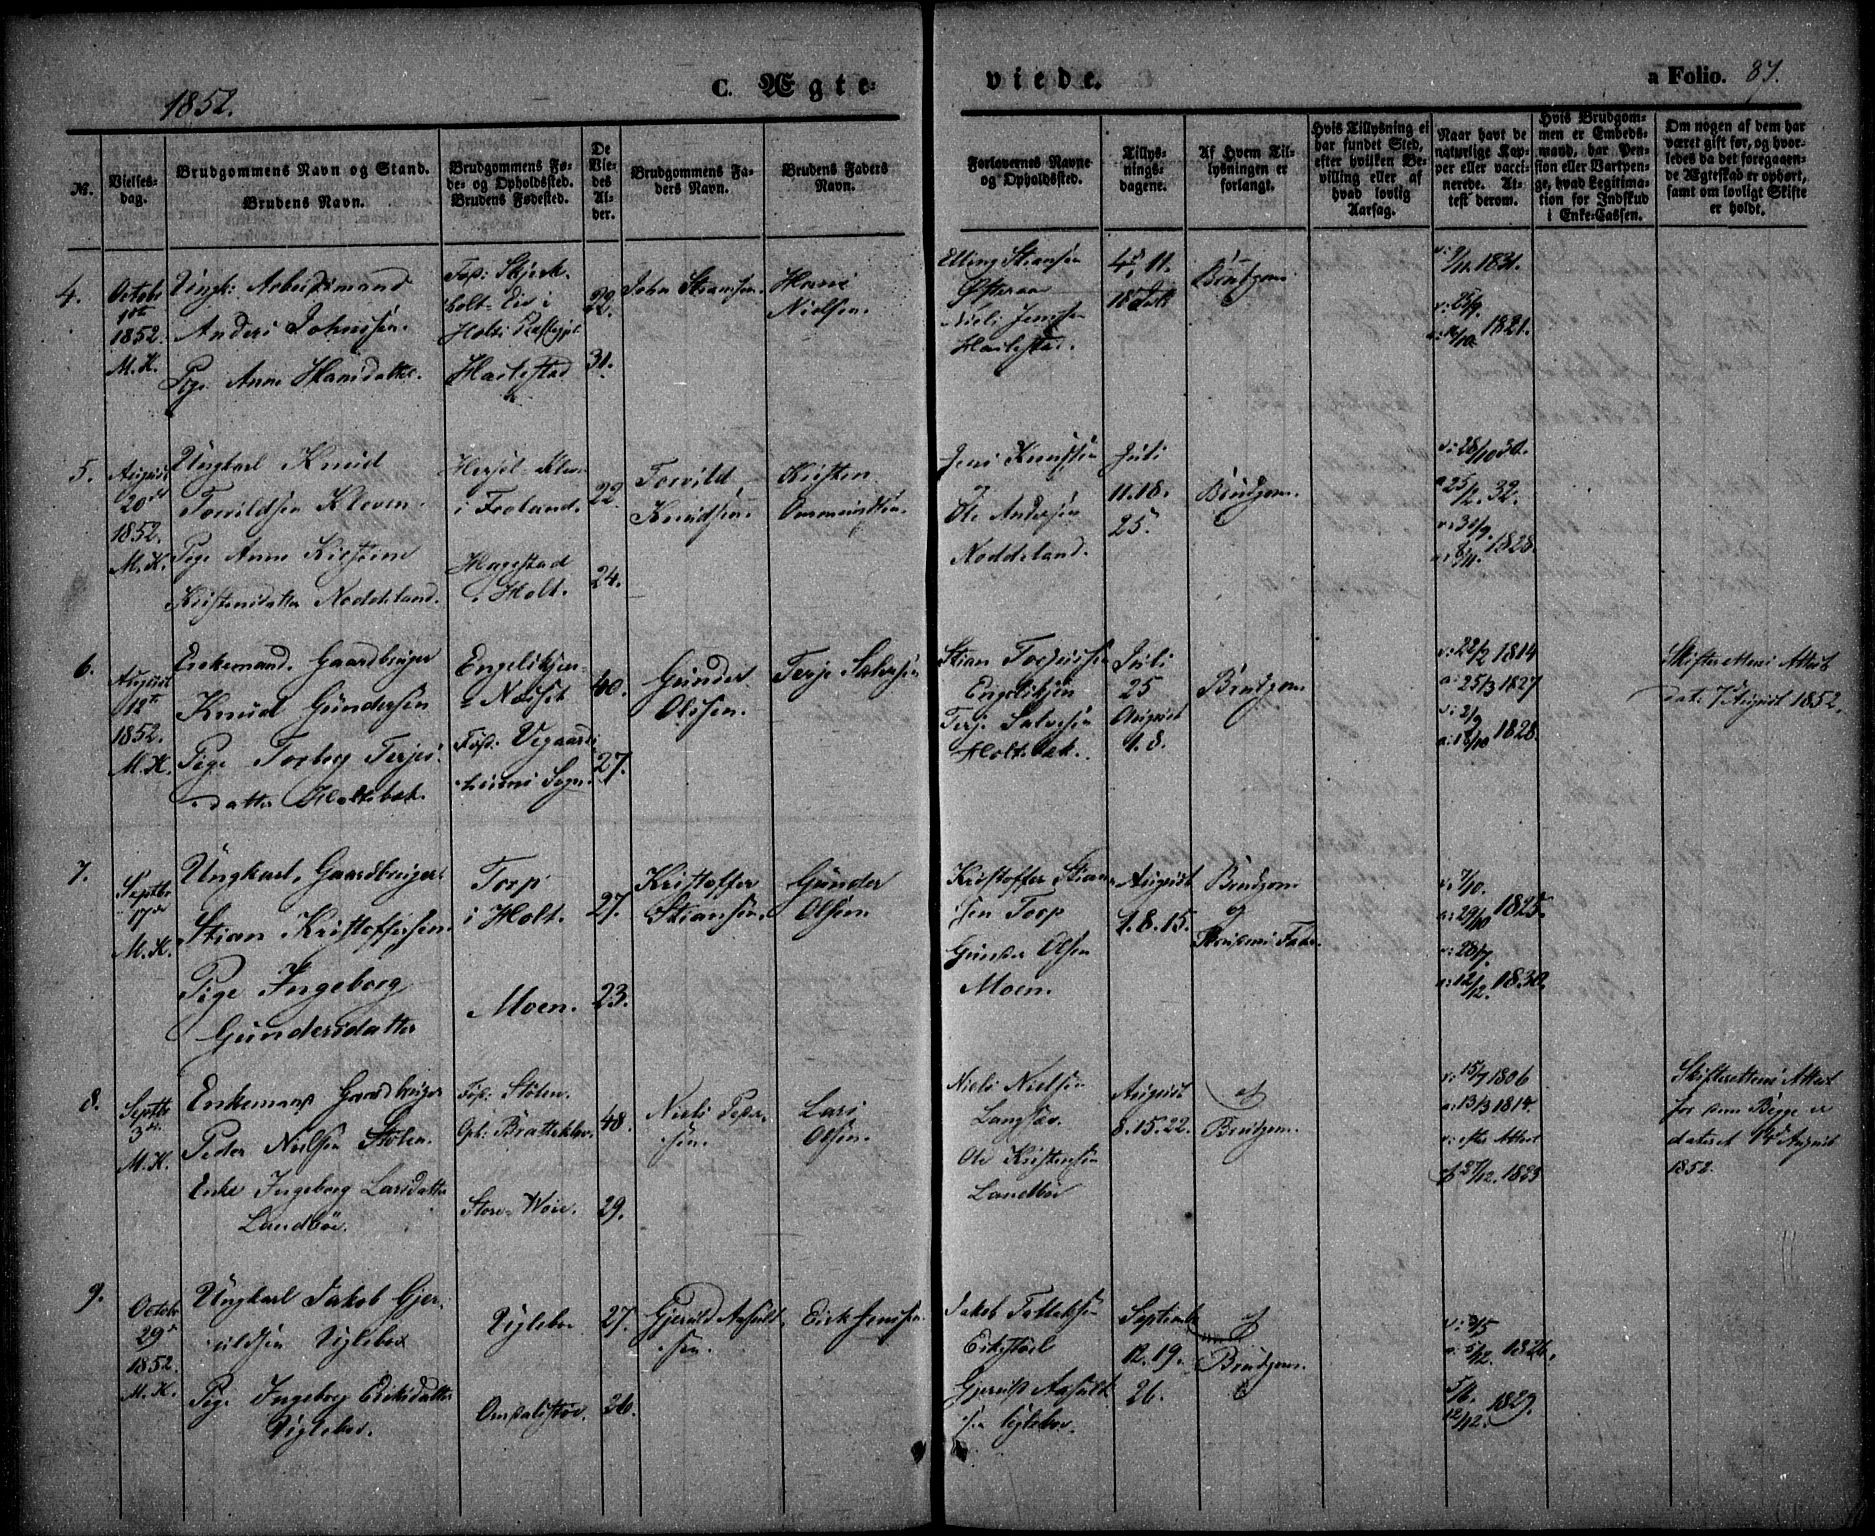 1852.
C. Ægte-
viede.
a Folio. 87.
№.
Vielses-
dag.
Brudgommens Navn og Stand.
Brudens Navn.
Brudgommens Fø-
de- og Opholdssted.
Brudens Fødested.
De
Vie-
des
Al-
der.
Brudgommens Fa-
ders Navn.
Brudens Faders
Navn.
Forlovernes Navne
og Opholdssted.
Tillys-
nings-
dagene.
Af Hvem Til-
lysningen er
forlangt.
Hvis Tillysning ei
har fundet Sted,
efter hvilken Be-
villing eller af
hvad lovlig
Aarsag.
Naar havt de
naturlige Kop-
per eller vacci-
nerede. At-
test derom.
Hvis Brudgom-
men er Embeds-
mand, har Pen-
sion eller Vartpen-
ge, hvad Legitima-
tion for Indskud
i Enke-Cassen.
Om nogen af dem har
været gift før, og hvor-
ledes da det foregaaen-
de Ægteskab er ophørt,
samt om lovligt Skifte
er holdt.
4.
Octobr
1852.
M. K.
Ungk: Arbeidsmand
Anders Johnsen.
Pige Anne Hansdatter.
Holt
Hagestad
22.
31.
John Stiansen.
Hans
Nielsen.
Elling Stiansen
Niels Jensen
Hagestad.
4, 11.
18 Juli
Brudgom
1831.
1821.
5.
August
20de
1852.
M. K.
Ungkarl Knud
Torvildsen Kleven.
Pige Anne Kirstine
Kristensdatter Noddeland.
i Froland.
Hagestad
i Holt.
22
24.
Torvild
Knudsen.
Kristen
Ommundsen.
Jens Knudsen
og
Ole Andersen
Noddeland.
Juli
11. 18.
25.
Brudgom.
v: 28/10 30.
a 25/2. 32.
1828.
6.
August
12te
1852.
M. K.
Enkemand. Gaardbruger
Knud Gundersen
Pige Torbor Terjes-
datter Holtebek.
Engelskjer
Fød: Vegaards-
heiens Sogn.
40.
27.
Gunder
Olsen.
Terje Salvesen
Stian
Terje Salvesen
Holtebek.
Juli
25
August
1. 8.
Brudgom
v: 22/2 1814
a: 25/3 1827
1828.
Skifterettens Attest
dat: 7 August 1852.
7.
Septbr
17de
M. K.
Ungkarl, Gaardbruger
Stian Kristoffersen.
Pige Ingeborg
Gundersdatter
Torp
i Holt.
Moen.
27.
23.
Kristoffer
Stiansen.
Gunder
Olsen
Kristoffer Stian-
sen Torp
Gunder Olsen
Moen.
August
1. 8. 15.
Brudgom
og
Brudens Fader.
v: 7/10.
a: 29/10 1825.
v: 28/7.
a: 12/12. 1830.
8.
Septbr
3de
M. K.
Enkemand Gaardbruger
Peder Nielsen Stolen.
Enke Ingeborg Larsdatter
Landbøe.
Fød: Stolen.
Oph: Bratteklev.
48.
29.
Niels Peder-
sen.
Lars
Olsen.
Niels Nielsen
Ole Kristensen
Landbøe
August
8. 15. 22.
af
Brudgom.
v: 15/7 1806
a: 13/3 1814.
1833
Skifterettens Attest
for dem Begge er
dateret August
1852.
9.
Octobr
29de
1852.
M. K.
Ungkarl Jakob Gjer-
uldsen Uglebo
Pige Ingeborg Eriksdatter
Uglebo.
Uglebo
27.
26.
Gjeruld Aasuld-
sen.
Erik Jensen.
Jakob
Gjeruld Aasuld-
sen Uglebo.
September
12. 19.
26.
af
Brudgom.
1826.
1829.